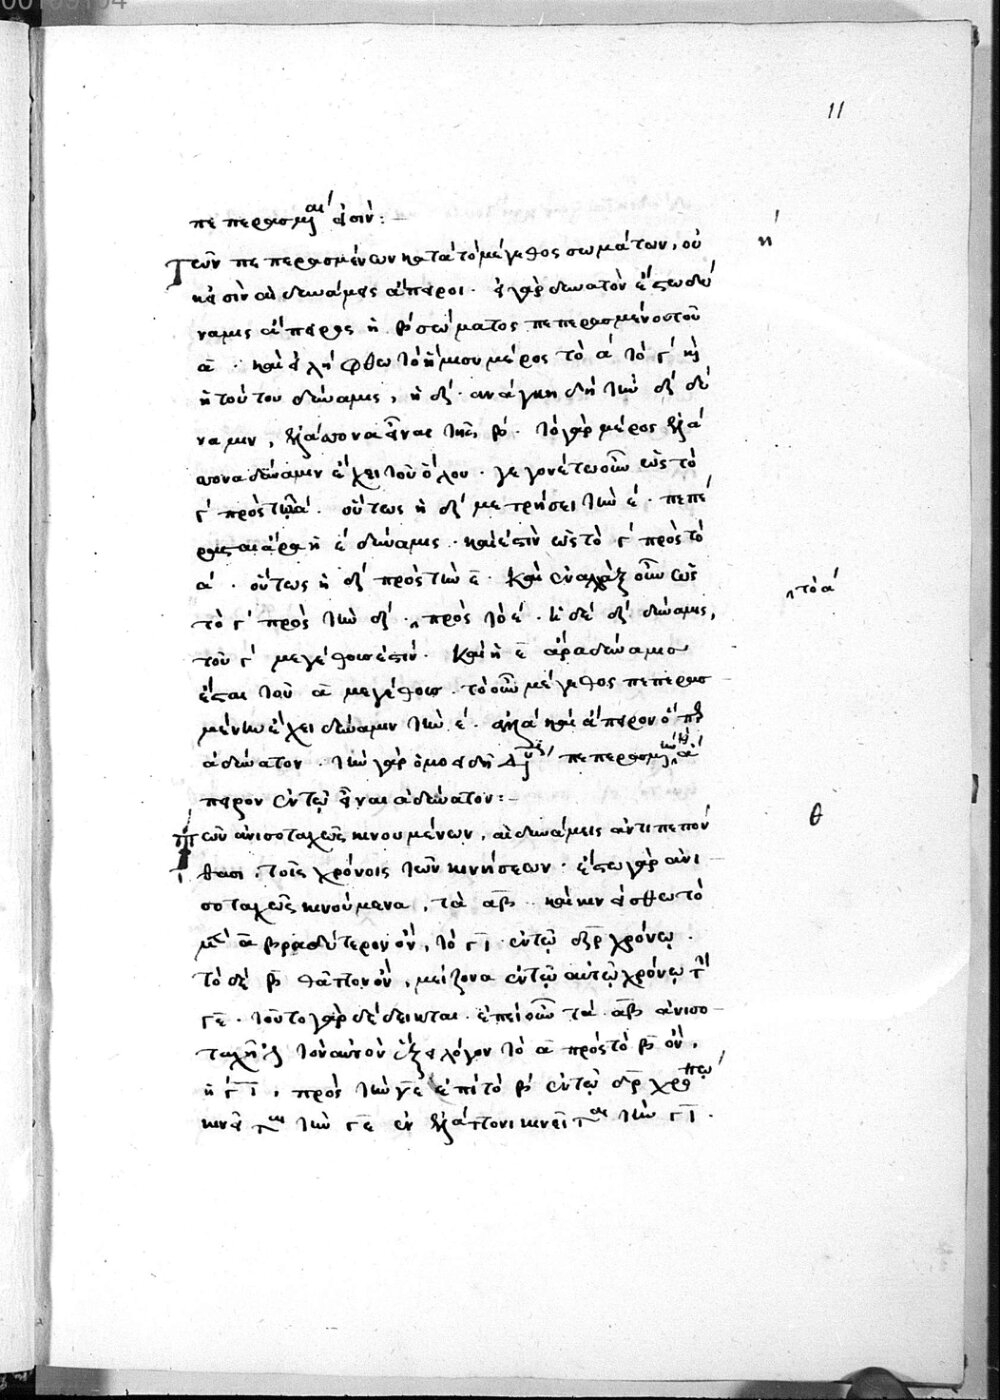 11
πεπερασμέναι εἰσίν:—
Τῶν πεπερασμένων κατὰ τὸ μέγεθος σωμάτων, οὐ
η΄
κεἰσὶν αἱ δυνάμεις ἄπειροι. εἰ γὰρ δυνατὸν ἔστω δύ
ναμις ἄπειρος ἡ β΄ σώματος πεπερασμένου τοῦ
α. καὶ εἰλήφθω τὸ ἥμισυ μέρος τοῦ α΄ τὸ γ΄ καὶ
ἡ τούτου δύναμις, ἡ δξ΄. ἀνάγκη δὴ τὴν δξ΄ δύ
ναμιν, ἐλάττονα εἶναι τῆς β΄. τὸ γὰρ μέρος ἐλά
ττονα δύναμιν ἔχει τοῦ ὅλου. γεγονέτω οὖν ὡς τὸ
γ΄ πρὸς τὸ α΄. οὕτως ἡ δξ΄ μετρήσει τὴν ε΄. πεπέ
ρασται ἄρα ἡ ε΄ δύναμις. καὶ ἔστιν ὡς τὸ γ΄ πρὸς τὸ
α΄. οὕτως ἡ δξ΄ πρὸς τὴν ε. καὶ ἐναλλὰξ οὖν ὡς
τὸ γ΄ πρὸς τὴν δξ΄. πρὸς τὸ ε΄. ἡ δὲ δξ΄ δύναμις,
τὸ α΄
τοῦ γ΄ μεγέθους ἐστίν. καὶ ἡ ε ἄρα δύναμις
ἔσται τοῦ α μεγέθους. τὸ οὖν μέγεθος πεπερασ
μένην ἔχει δύναμιν τὴν ε΄. ἀλλὰ καὶ ἄπειρον ὅπερ
ἀδύνατον. τὴν γὰρ ὁμοειδῆ πεπερασμένην καὶ ἄ
πειρον ἐν τῷ εἶναι ἀδύνατον:—
Τῶν ἀνισοταχῶς κινουμένων, αἱ δυνάμεις ἀντιπεπόν
θ
θασι τοῖς χρόνοις τῶν κινήσεων. ἔστω γὰρ ἀνι
σοταχῶς κινούμενα, τὰ αβ. καὶ κινείσθω τὸ
μὲν α βραδύτερον ὄν, τὸ γι. ἐν τῷ δζ χρόνῳ.
τὸ δὲ β θᾶττον ὄν, μείζονα ἐν τῷ αὐτῷ χρόνῳ τὴν
γε. τοῦτο γὰρ δέδεικται. ἐπεὶ οὖν τὰ αβ ἀνισο
ταχῆ τὸν αὐτὸν ἕξει λόγον τὸ α πρὸς τὸ β ὃν,
ἡ γι, πρὸς τὴν γε ἐπὶ τὸ β΄ ἐν τῷ δζ χρόνῳ
κινεῖται τὴν γε ἐν ἐλάττονι κινεῖται τὴν γι.